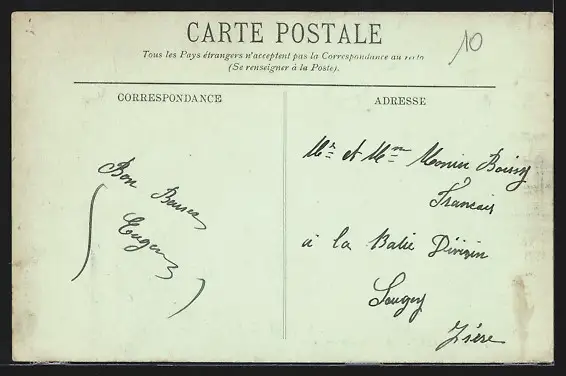 CARTE POSTALE
Tous les Pays étrangers n'acceptent pas la Correspondance au recto
(Se renseigner à la Poste).
10
CORRESPONDANCE
ADRESSE
Bon Baisers
Eugene
Mr et Mme Monin Boissy
Francais
à la Batie Divisin
Isère